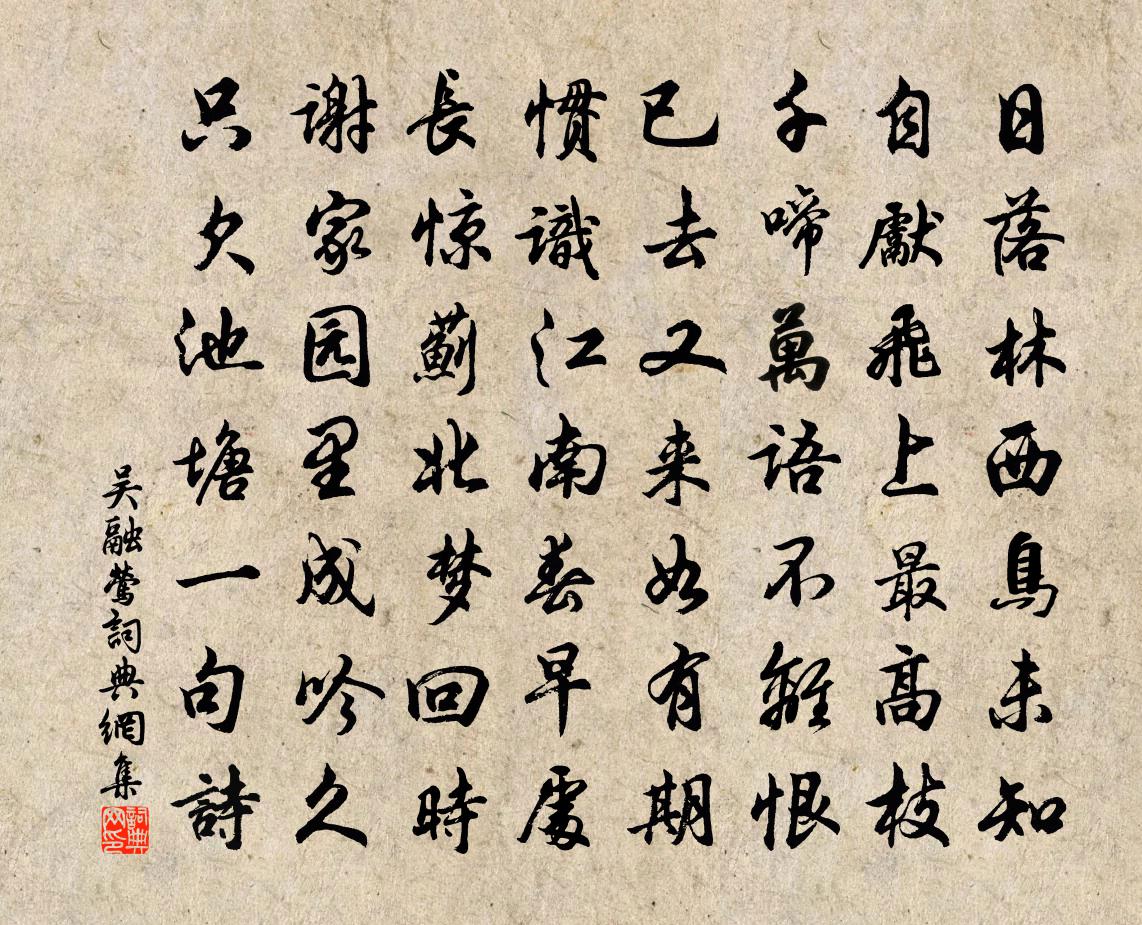 日落林西鳥未知
自獻飛上最高枝
千啼萬語不離恨
已去又来如有期
慣識江南春早處
長惊薊北梦回時
謝家园里成吟久
只欠池塘一句詩
吴融鶯詞典網集
詞典网印